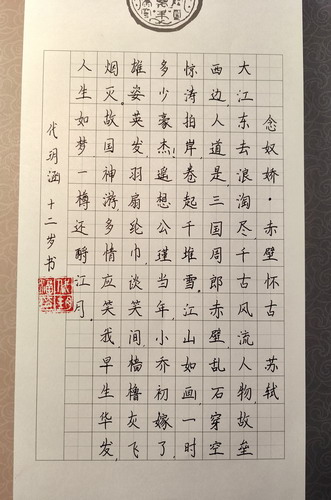 念奴娇·赤壁怀古 苏轼
大江东去浪淘尽,千古风流人物,故垒
西边,人道是三国周郎赤壁,乱石穿空
惊涛拍岸,卷起千堆雪,江山如画一时
多少豪杰!遥想公瑾当年,小乔初嫁了,
雄姿英发,羽扇纶巾,谈笑间樯橹灰飞
烟灭,故国神游,多情应笑我早生华发,
人生如梦一樽还酹江月.
代玥涵 十二岁书